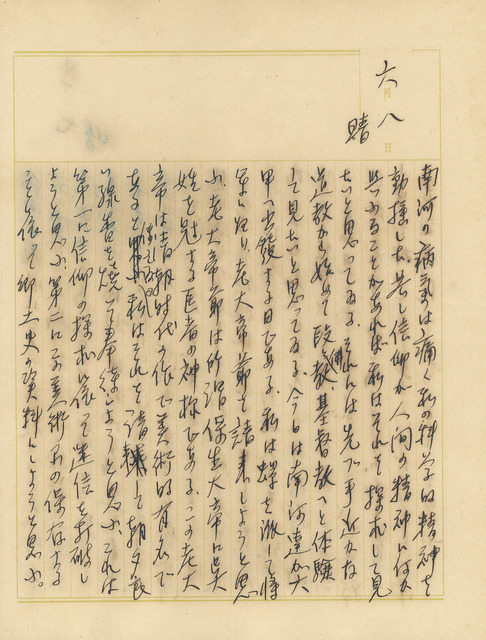 六月八日
晴
南河の病気は痛く私の科学的精神を
動揺した。若し信仰が人間の精神に何か
与ふることがあれば私はそれを探求して見
たいと思ってゐる。それには先づ手近かな
道教から始めて段々基督教へと体験
して見たいと思ってゐる。今日は南河達が大
甲へ出発する日である。私は
老大帝爺を請
ふ。老大帝爺は所謂保生大帝
姓を 医者の神様である。この老大
帝は清朝時代の作で美術的有名で
あると 私はそれを 朝夕
線香を焼いて奉祀しようと思ふ。これは
第一に信仰の探求に依って迷信を打破し
ようと思ふ、第二にこの美術品の保存する
ことに依って郷土史の資料にしようと思ふ。